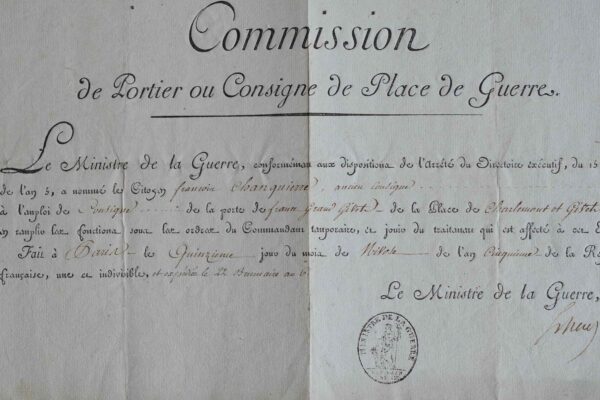 Commission
de Portier ou Consigne de Place de Guerre.
Le Ministre de la Guerre, conformément aux dispositions de l'Arrêté du Directoire exécutif, du 15
de l'an 5, a nommé le Citoyen francois ancien consigne
à l'emploi de Consigne de la porte de france Grand Givet de la Place de Charlemont et Givet
en remplir les fonctions sous les ordres du Commandant temporaire, et jouir du traitement qui est affecté à cet
Fait à Paris le Quinzieme jour du mois de Nivose de l'an Cinquieme de la Ré
française, une et indivisible, et expédiée le 22 Brumaire an 6
Le Ministre de la Guerre,
MINISTRE DE LA GUERRE